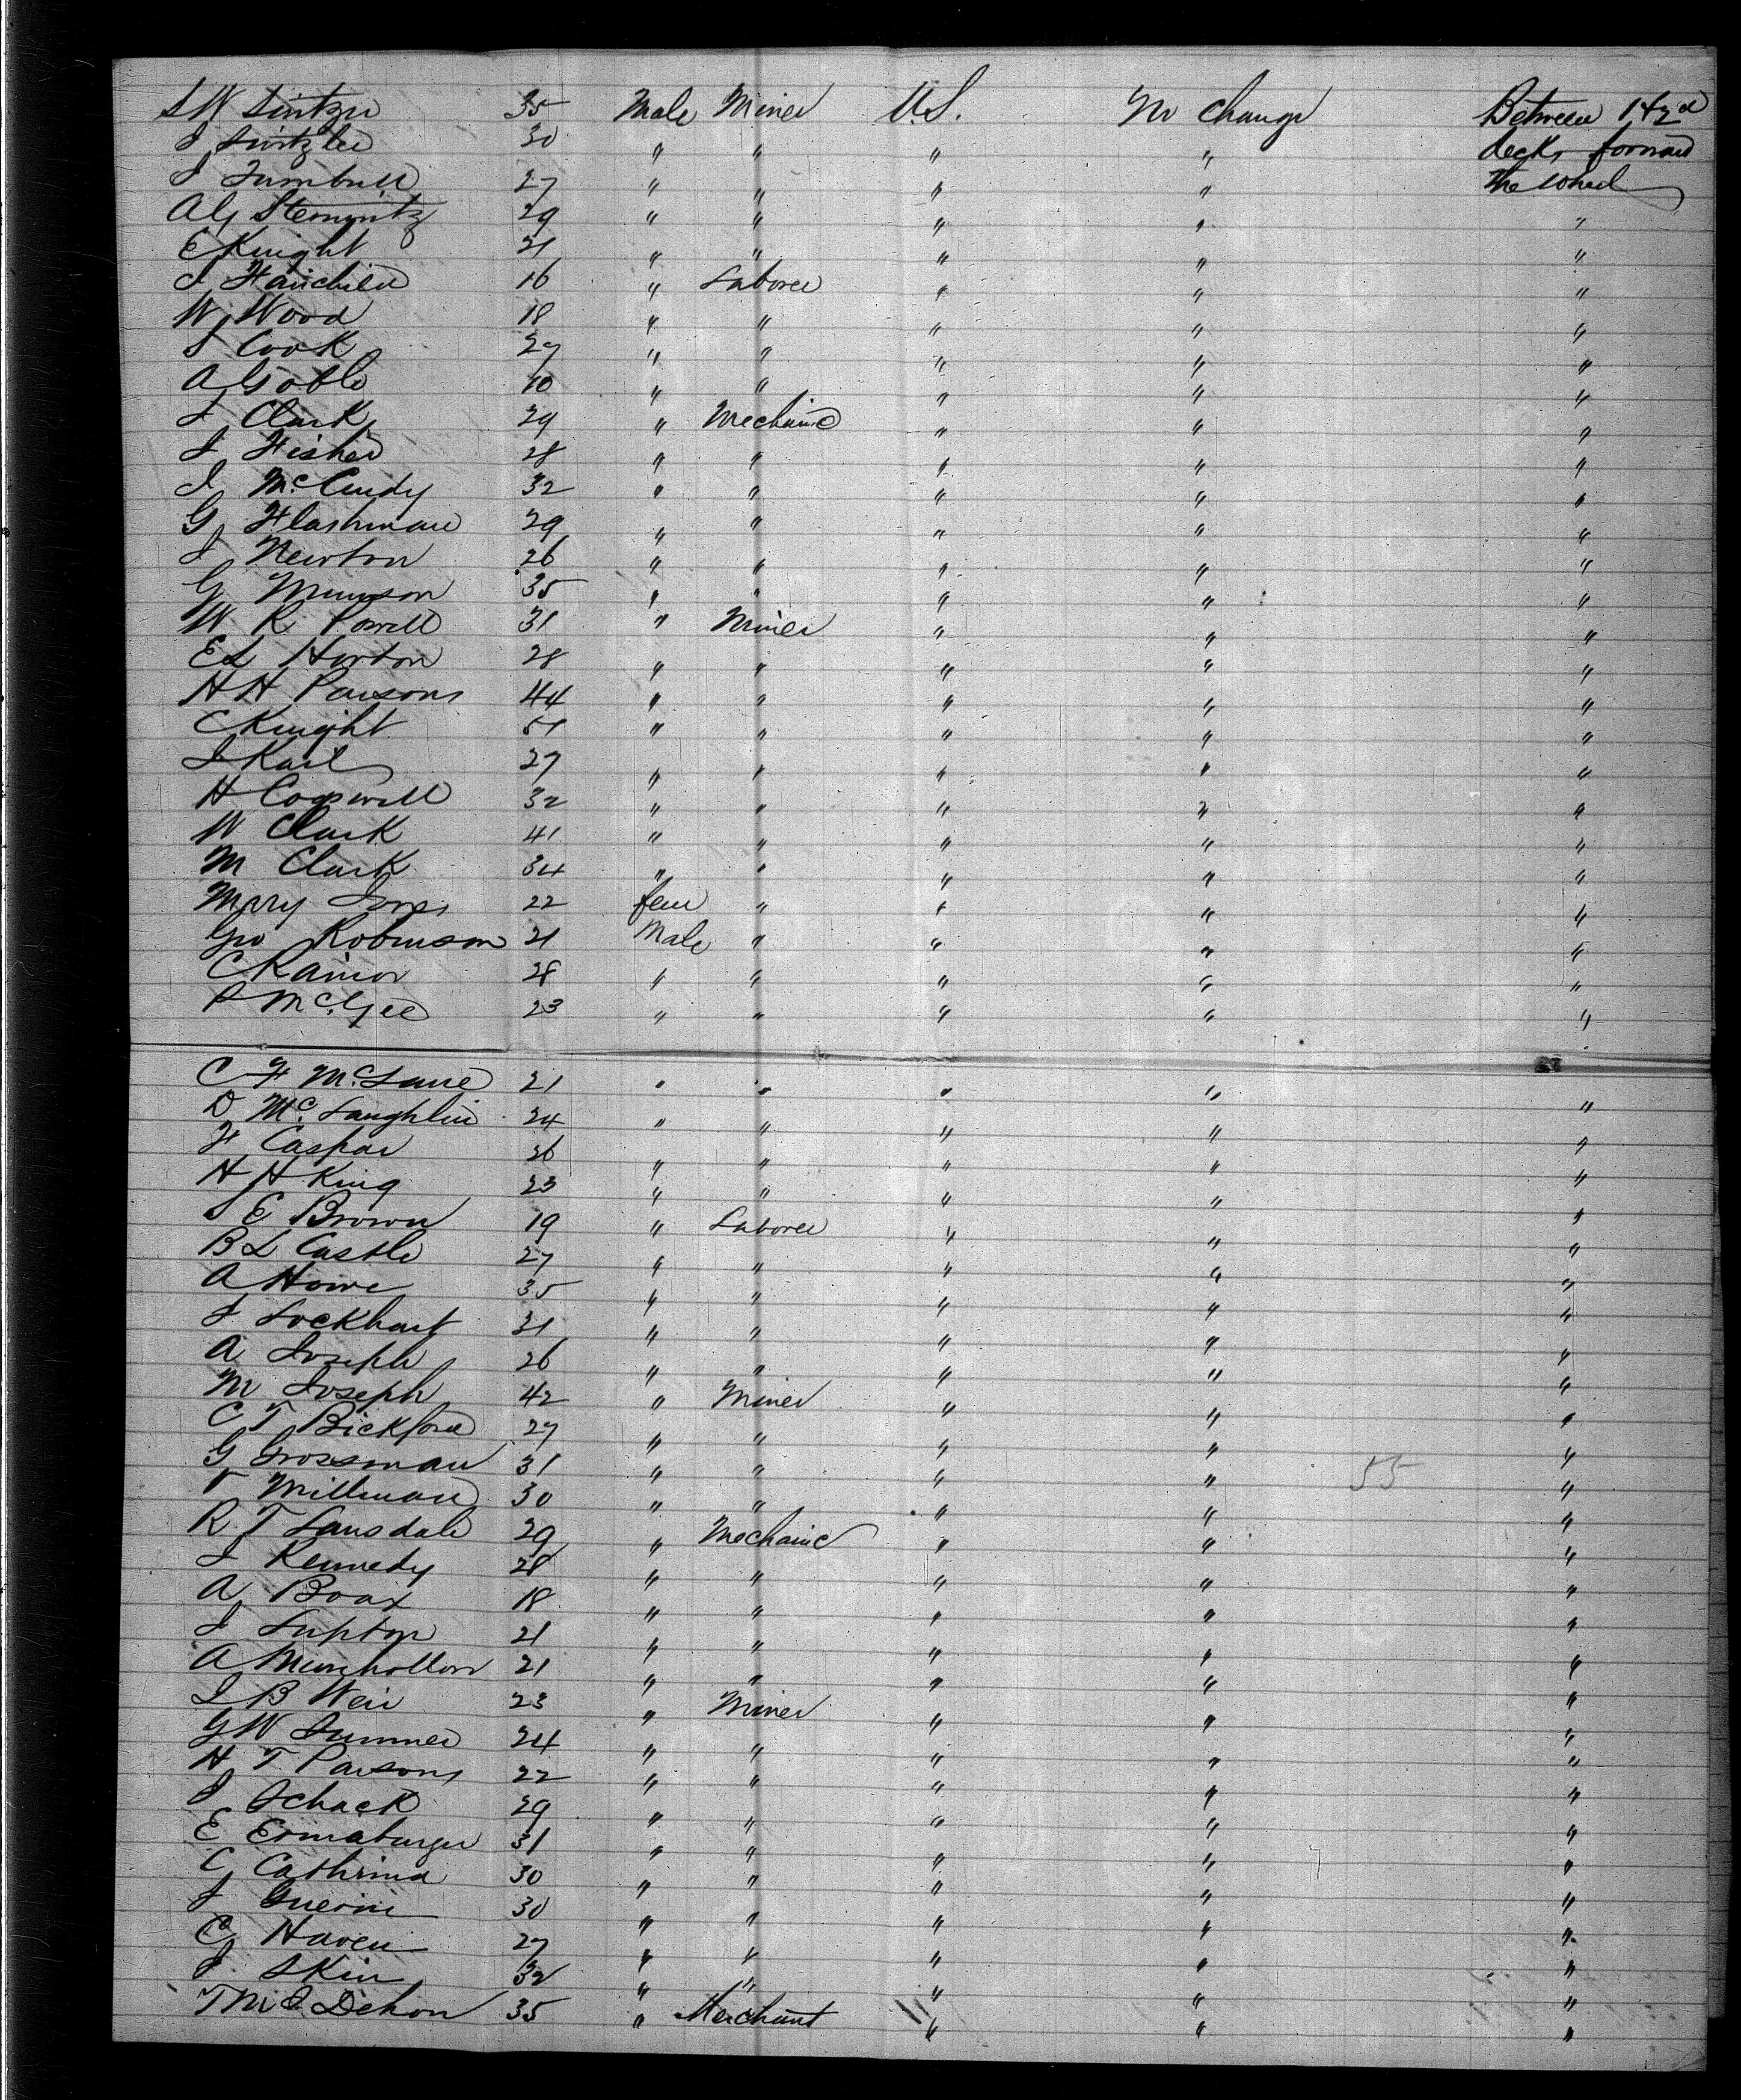 S W Lintzer 35 Male Miner U.S. No Change Between 1 & 2d
J Lintzler 30 " " " " decks forward
J Turnbull 27 " " " " the wheel
A G Stemmitz 29 " " " " "
E Knight 21 " " " " "
J Fairchild 16 " Laborer " " "
W Wood 18 " " " " "
J Cook 27 " " " " "
A Goble 10 " " " " "
J Clark 29 " Mechanic " " "
J Fisher 28 " " " " "
J McCurdy 32 " " " " "
G Flashman 29 " " " " "
J Newton 26 " " " " "
G Munson 35 " " " " "
W R Powell 31 " Miner " " "
E L Horton 28 " " " " "
H H Parsons 44 " " " " "
C Knight 51 " " " " "
J Karl 27 " " " " "
H Cogswell 32 " " " " "
W Clark 41 " " " " "
M Clark 34 " " " " "
Mary Jones 22 fem " " " "
Geo Robinson 21 Male " " " "
C Rainor 28 " " " " "
P McGee 23 " " " " "
C F McLane 21 " " " " "
D McLaughlin 24 " " " " "
F Caspar 26 " " " " "
H H King 23 " " " " "
J E Brown 19 " Laborer " " "
B L Castle 27 " " " " "
A Howe 35 " " " " "
J Lockhart 31 " " " " "
A Joseph 26 " " " " "
M Joseph 42 " Miner " " "
C T Bickford 27 " " " " "
G Grossman 31 " " " 55 "
V Millman 30 " " " " "
R T Lansdale 29 " Mechanic " " "
J Kennedy 28 " " " " "
A Boax 18 " " " " "
J Lupton 21 " " " " "
A Munhollon 21 " " " " "
J B Weir 23 " Miner " " "
G W Sumner 24 " " " " "
H T Parsons 22 " " " " "
J Schack 29 " " " " "
E Ermaburger 31 " " " " "
C Cathrina 30 " " " " "
J Guerin 30 " " " " "
C Haven 27 " " " " "
J Skin 32 " " " " "
T M J Dehon 35 " Merchant " " "